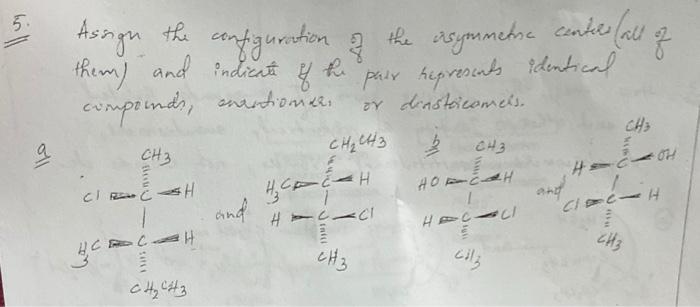 5. Assign the configuration of the asymmetric centers (all of
them) and indicate if the pair represents identical
compounds, enantiomers or diastereomers.
a CH3 CH2CH3 b CH3 CH3
Cl C H H3C C H HO C H H C OH
and and
H3C C H H C Cl H C Cl Cl C H
CH2CH3 CH3 CH3 CH3